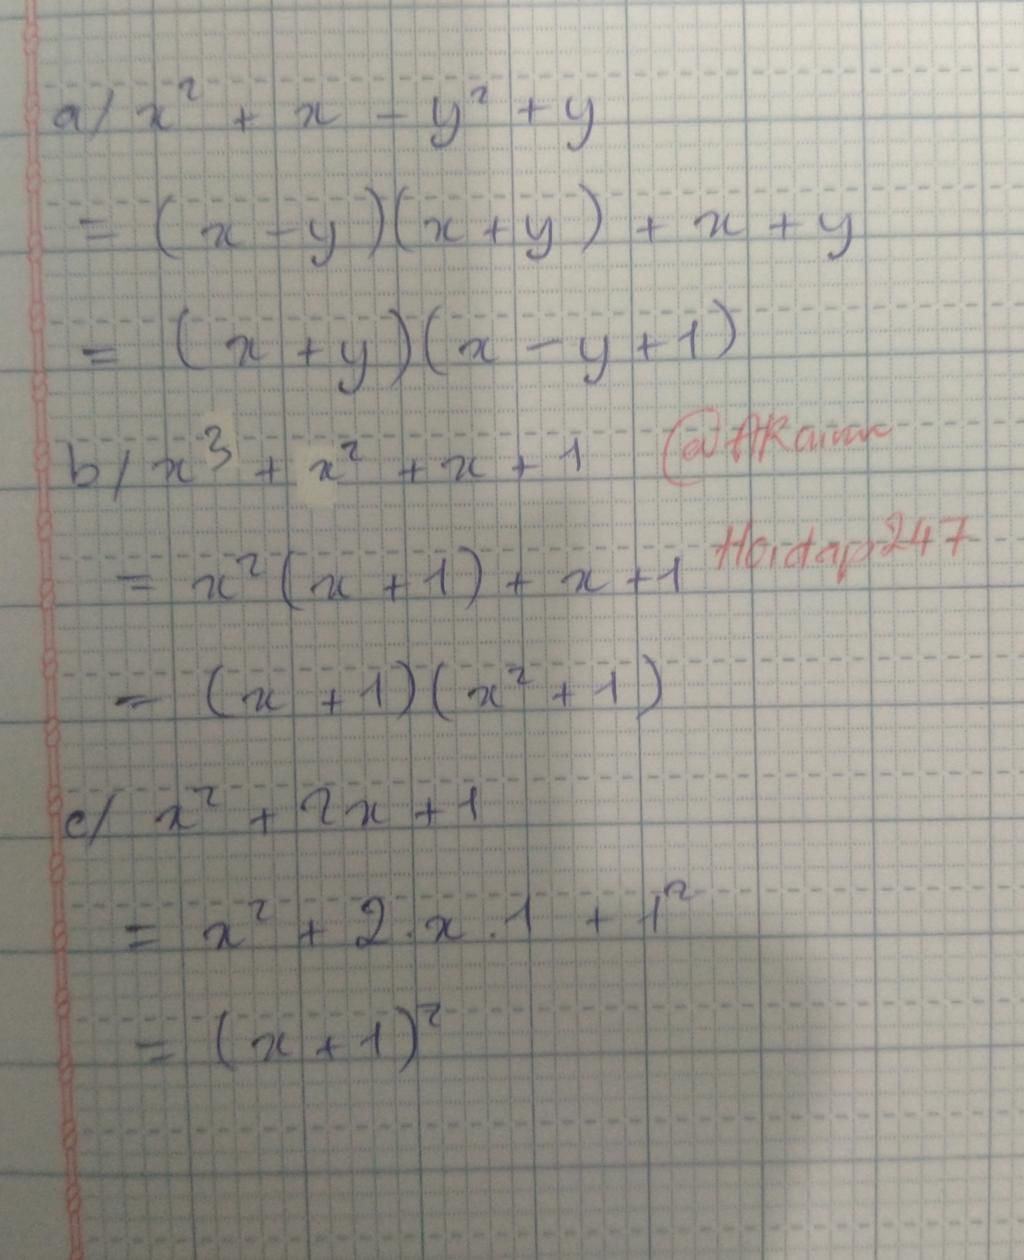 a/ x² + x - y² + y
= (x - y)(x + y) + x + y
= (x + y)(x - y + 1)
b/ x³ + x² + x + 1
= x²(x + 1) + x + 1
Hoidap247
= (x + 1)(x² + 1)
c/ x² + 2x + 1
= x² + 2.x.1 + 1²
= (x + 1)²